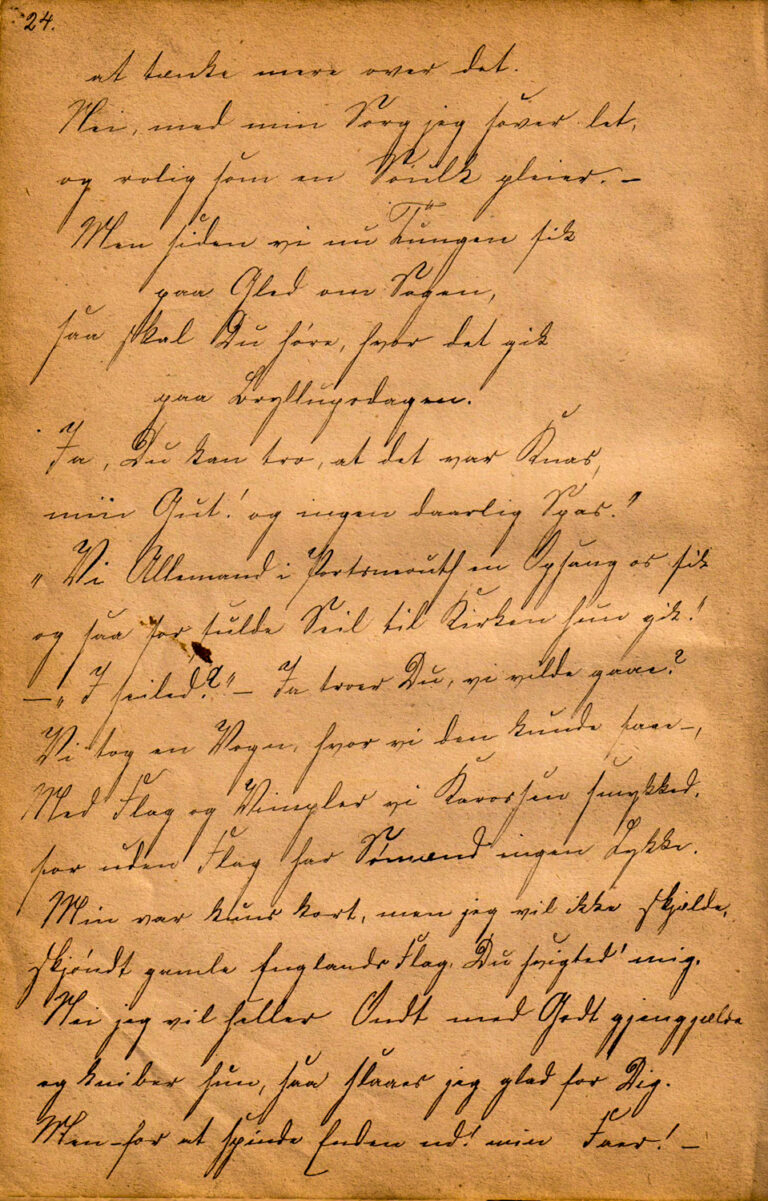 24.
at tænke mere over det.
Nei, med min Sorg jeg sover let,
og rolig som en Skulk pleier. –
Men siden vi nu Tungen fik
paa Gled om Sagen,
saa skal Du høre, hvor det gik
paa Bryllupsdagen.
Ja, Du kan tro, at det var Knas,
min Gut! og ingen daarlig Spas."
"Vi Allemand i Portsmouth en Opsang os fik
og saa for fulde Seil til Kirken hun gik!
– "I seiled?" – Ja troer Du, vi vilde gaae?
Vi tog en Vogn, hvor vi den kunde faae –,
Med Flag og Vimpler vi Karossen smykked,
for uden Flag har Sømænd ingen Lykke.
Min var kuns kort, men jeg vil ikke skjælde,
skjøndt gamle Englands Flag, Du svigted' mig.
Nei jeg vil heller Ondt med Godt gjengjælde
og kniber hun, saa slaaes jeg glad for Dig.
Men – for at spinde Enden ud! min Faer! –